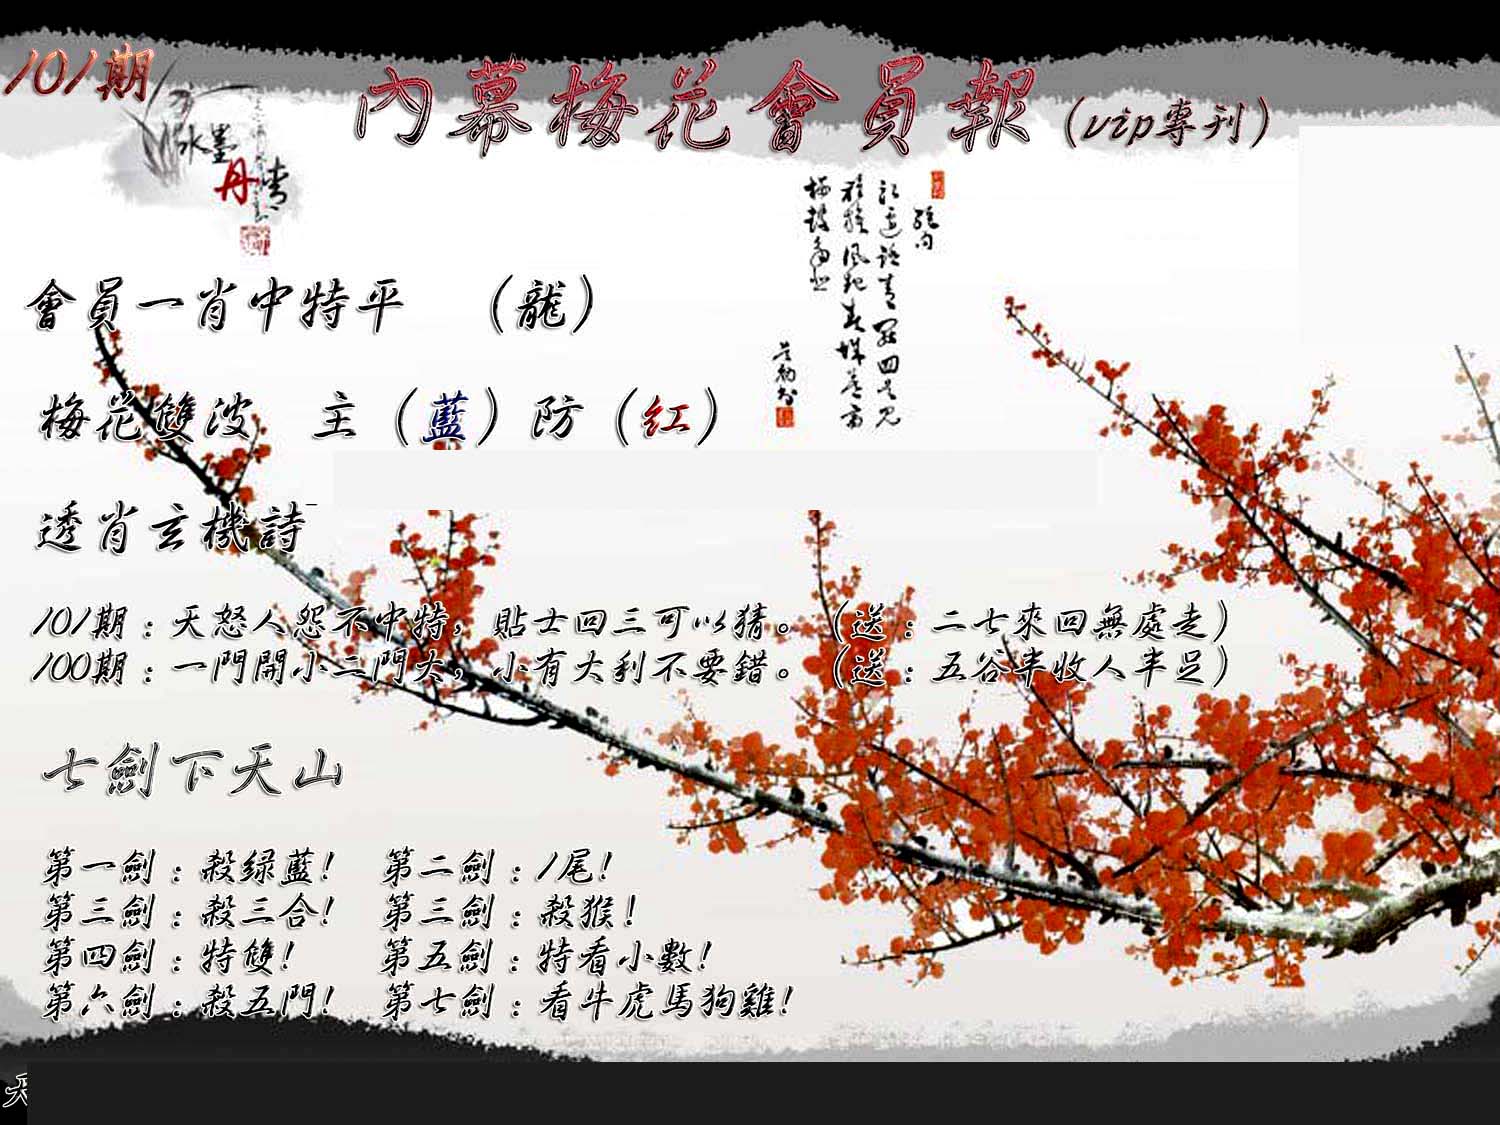 101期
內幕梅花會員報(vip專刊)
水墨
丹青
會員一肖中特平 (龍)
梅花雙波 主(藍)防(紅)
透肖玄機詩
101期:天怒人怨不中特,貼士回三可以猜。(送:二七來回無處走)
100期:一門開小二門大,小有大利不要錯。(送:五谷豐收人豐足)
七劍下天山
第一劍:殺绿藍! 第二劍:1尾!
第三劍:殺三合! 第三劍:殺猴!
第四劍:特雙! 第五劍:特看小數!
第六劍:殺五門! 第七劍:看牛虎馬狗雞!